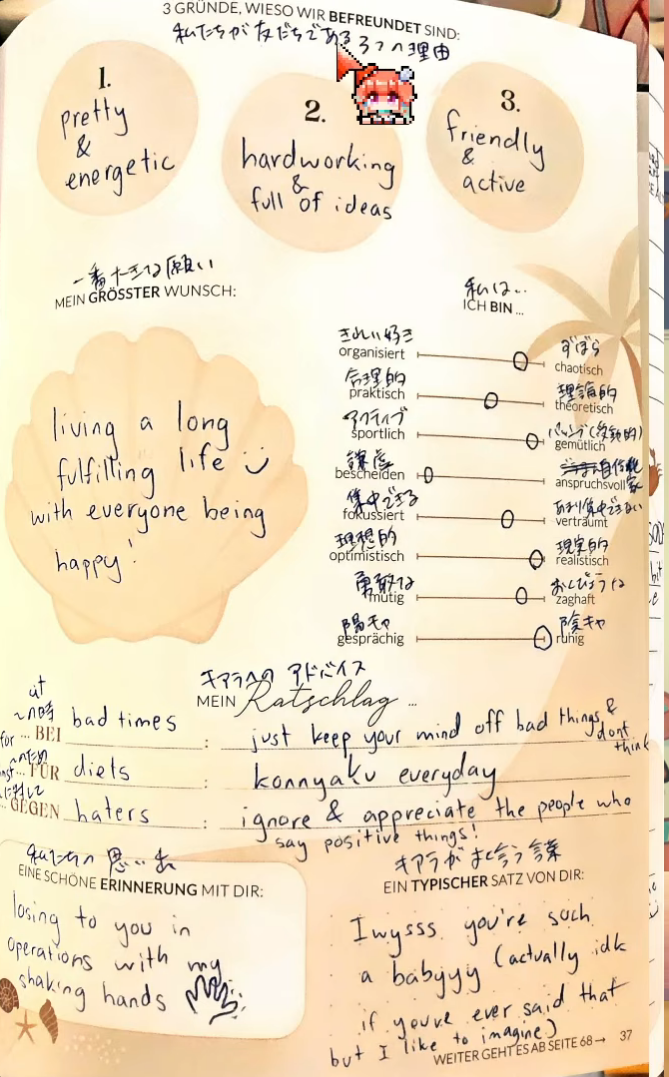 3 GRÜNDE, WIESO WIR BEFREUNDET SIND:
私たちが友だちである3つの理由
1.
pretty
&
energetic
2.
hardworking
&
full of ideas
3.
friendly
&
active
一番大きな願い
MEIN GRÖSSTER WUNSCH:
living a long
fulfilling life
with everyone being
happy!
私は…
ICH BIN ...
きれい好き
organisiert
ずぼら
chaotisch
合理的
praktisch
理論的
theoretisch
アクティブ
sportlich
gemütlich
謙虚
bescheiden
anspruchsvoll
集中できる
fokussiert
あまり集中できない
verträumt
理想的
optimistisch
現実的
realistisch
勇敢な
mutig
おくびょうな
zaghaft
陽キャ
gesprächig
陰キャ
ruhig
キアラへの アドバイス
MEIN Ratschlag ...
at
〜の時
... BEI bad times : just keep your mind off bad things & dont think
for
〜のため
... FÜR diets : konnyaku everyday
に対して
... GEGEN haters : ignore & appreciate the people who
say positive things!
私たちの思い出
EINE SCHÖNE ERINNERUNG MIT DIR:
losing to you in
operations with my
shaking hands
キアラがよく言う言葉
EIN TYPISCHER SATZ VON DIR:
Iwysss you're such
a babyyy (actually idk
if you've ever said that
but I like to imagine)
WEITER GEHT ES AB SEITE 68→ 37